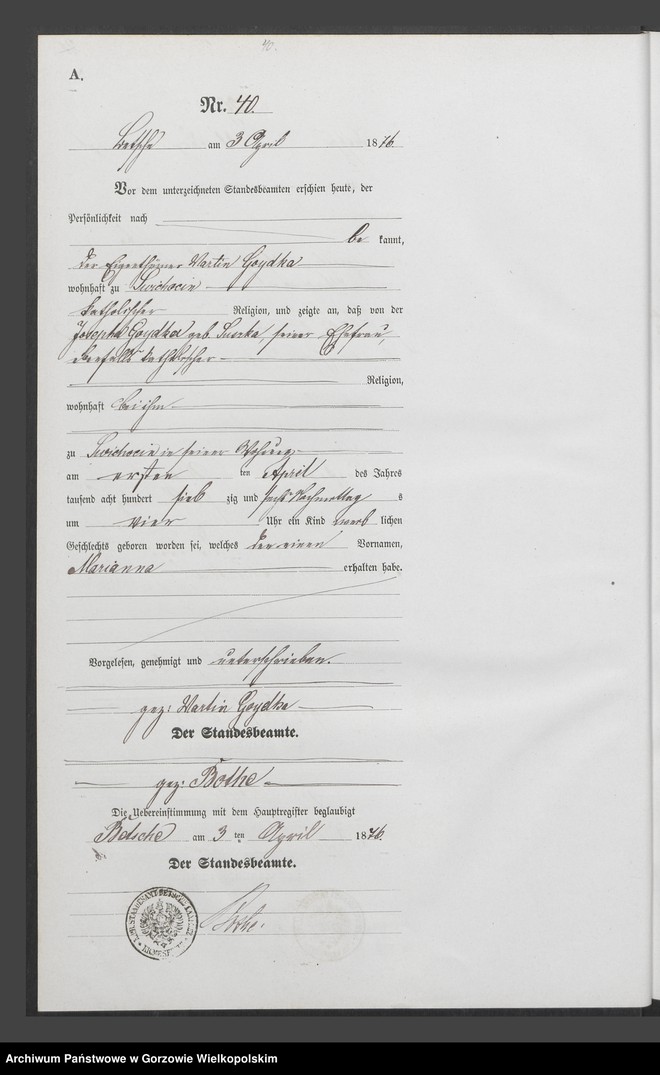 40.
A.
Nr. 40.
Betsche am 3 April 1876.
Vor dem unterzeichneten Standesbeamten erschien heute, der
Persönlichkeit nach
be kannt,
der Eigenthümer Martin Goydka
wohnhaft zu
katholischer Religion, und zeigte an, daß von der
Josepha Goydka geb. seiner Ehefrau,
ebenfalls katholischer
Religion,
wohnhaft bei ihm
zu in seiner Wohnung
am ersten ten April des Jahres
tausend acht hundert sieb zig und sechs Nachmittag s
um vier Uhr ein Kind weib lichen
Geschlechts geboren worden sei, welches den einen Vornamen,
Marianna erhalten habe.
Vorgelesen, genehmigt und unterschrieben.
gez: Martin Goydka
Der Standesbeamte.
gez: Bothe
Die Uebereinstimmung mit dem Hauptregister beglaubigt
Betsche am 3 ten April 1876.
Der Standesbeamte.
Bothe.
Archiwum Państwowe w Gorzowie Wielkopolskim